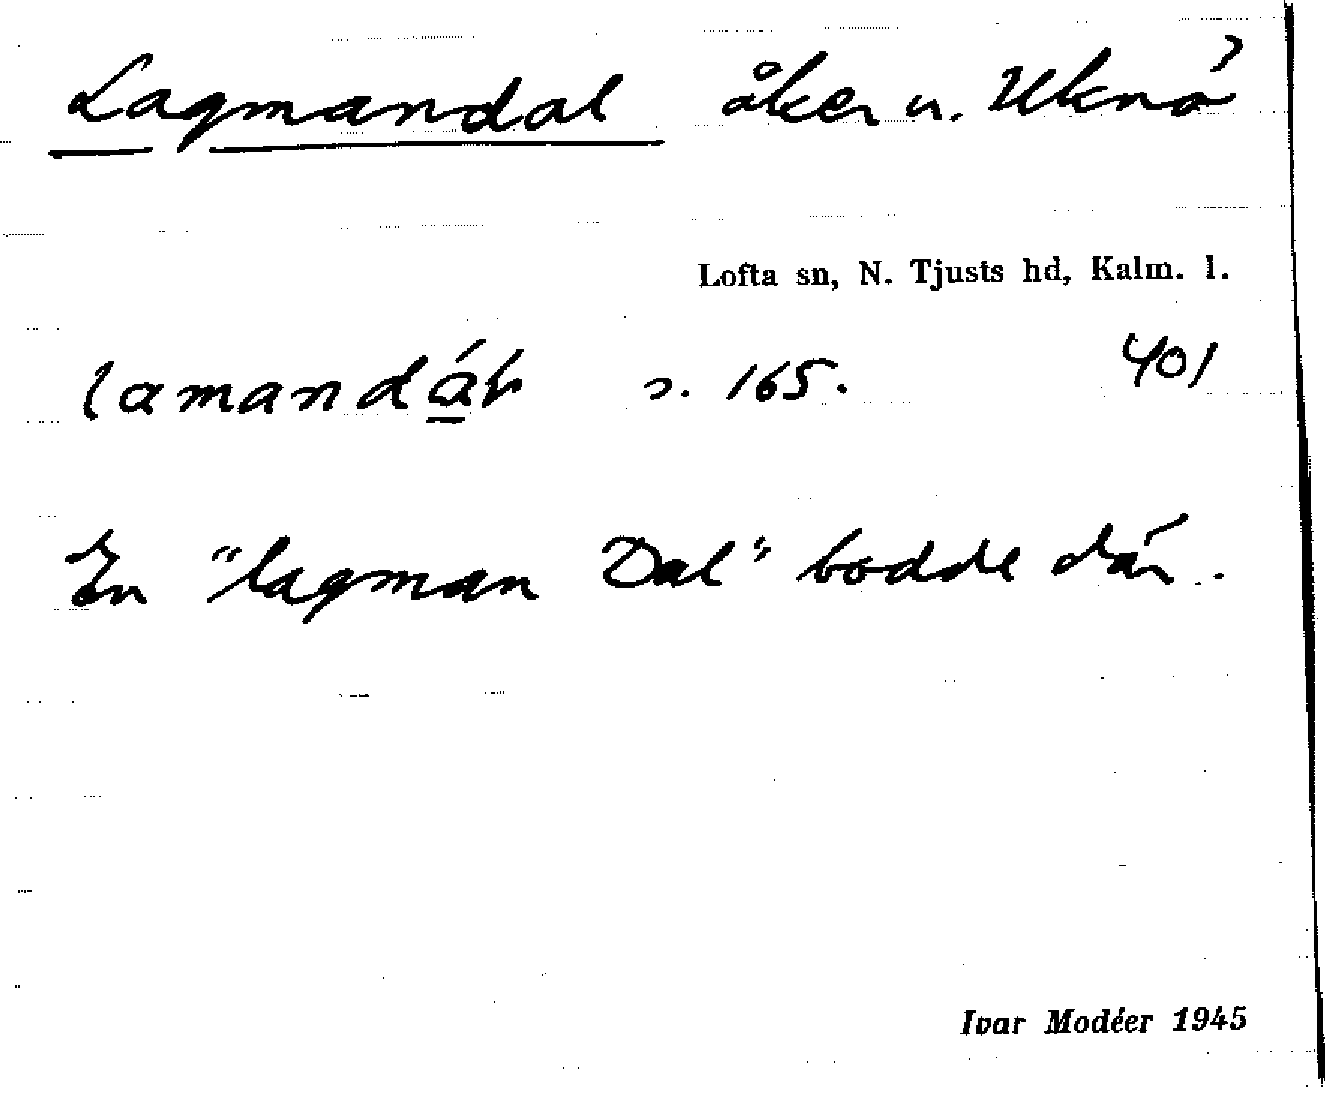 Lagmandal åker u. Uknö
Lofta sn, N. Tjusts hd, Kalm. l.
lamandáł s. 165. 401
En "lagman Dal" bodde där.
Ivar Modéer 1945